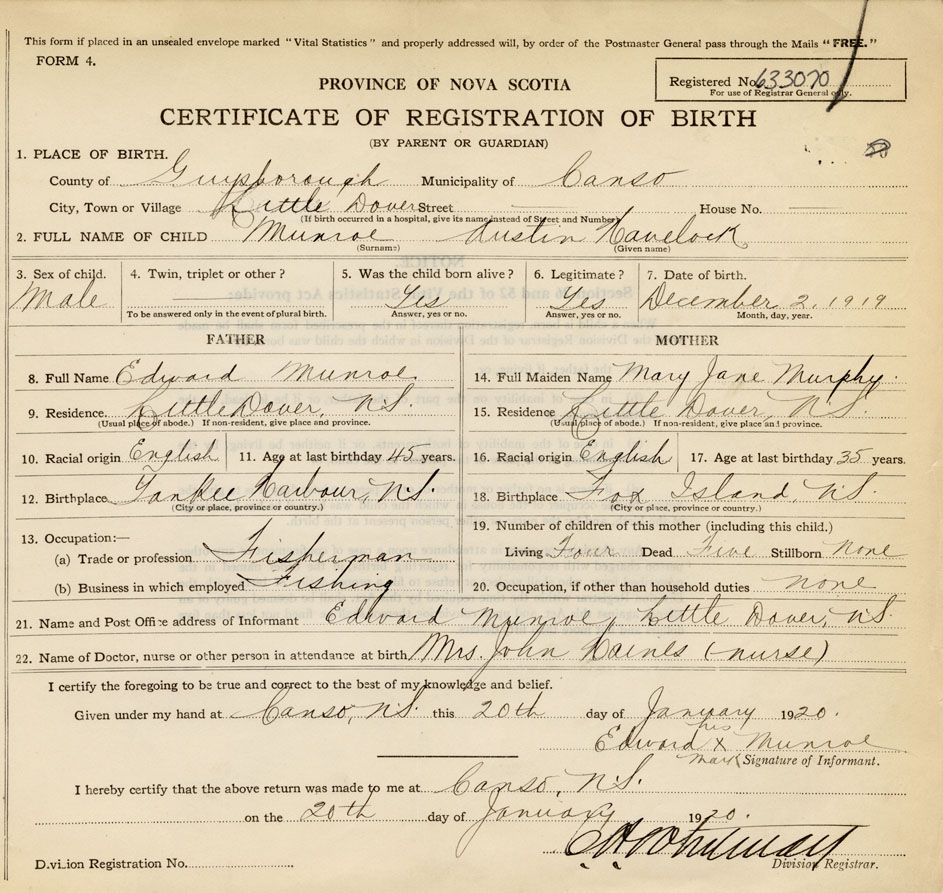 This form if placed in an unsealed envelope marked "Vital Statistics" and properly addressed will, by order of the Postmaster General pass through the Mails "FREE."
FORM 4.
Registered No. 633070
For use of Registrar General only.
PROVINCE OF NOVA SCOTIA
CERTIFICATE OF REGISTRATION OF BIRTH
(BY PARENT OR GUARDIAN)
1. PLACE OF BIRTH.
County of Guysborough Municipality of Canso
City, Town or Village Little Dover Street House No.
(If birth occurred in a hospital, give its name instead of Street and Number)
2. FULL NAME OF CHILD Munroe Austin Havelock
(Surname) (Given name)
3. Sex of child. 4. Twin, triplet or other? 5. Was the child born alive? 6. Legitimate? 7. Date of birth.
Male Yes Yes December 2, 1919
To be answered only in the event of plural birth. Answer, yes or no. Answer, yes or no. Month, day, year.
FATHER MOTHER
8. Full Name Edward Munroe 14. Full Maiden Name Mary Jane Murphy.
9. Residence. Little Dover, N.S. 15. Residence Little Dover, N.S.
(Usual place of abode.) If non-resident, give place and province. (Usual place of abode.) If non-resident, give place and province.
10. Racial origin English 11. Age at last birthday 45 years. 16. Racial origin English 17. Age at last birthday 35 years.
12. Birthplace Yankee Harbour, N.S. 18. Birthplace Fox Island, N.S.
(City or place, province or country.) (City or place, province or country.)
13. Occupation:— 19. Number of children of this mother (including this child.)
(a) Trade or profession Fisherman Living Four Dead Five Stillborn None
(b) Business in which employed Fishing 20. Occupation, if other than household duties none
21. Name and Post Office address of Informant Edward Munroe, Little Dover, N.S.
22. Name of Doctor, nurse or other person in attendance at birth Mrs. John Haines (-nurse)
I certify the foregoing to be true and correct to the best of my knowledge and belief.
Given under my hand at Canso, N.S. this 20th day of January 1920.
his
Edward X Munroe
mark Signature of Informant.
I hereby certify that the above return was made to me at Canso, N.S.
on the 20th day of January 1920.
Division Registrar.
Division Registration No.